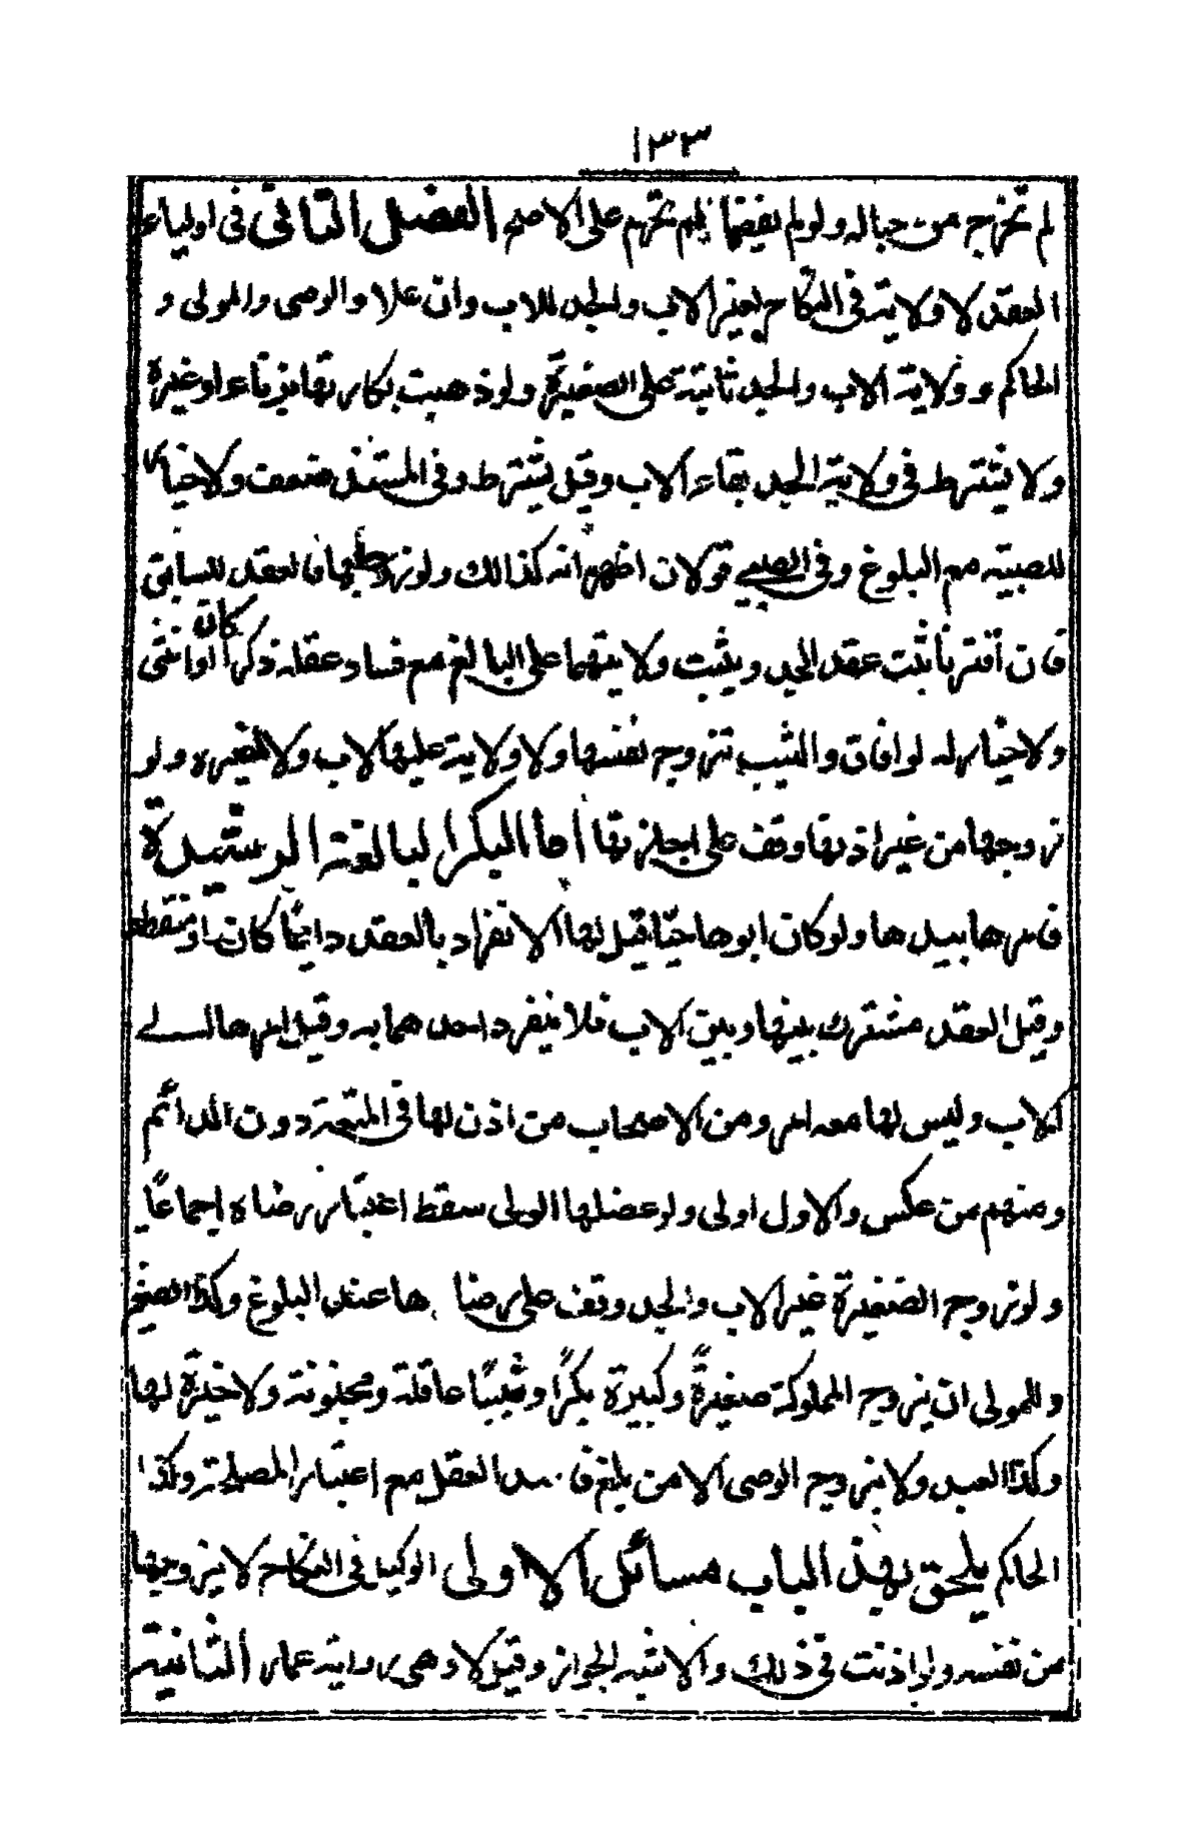 ١٣٣
لم تخرج من حباله ولو لم يفضها لم تحرم على الاصح الفصل الثاني في اولياء
العقد لا ولاية في النكاح لغير الاب والجد للاب وان علا والوصي والمولى و
الحاكم وولاية الاب والجد ثابتة على الصغيرة ولو ذهبت بكارتها بزناء او غيره
ولا يشترط في ولاية الجد بقاء الاب وقيل يشترط وفي المستند ضعف ولا خيار
للصبية مع البلوغ وفي الصبي قولان اظهرهما انه كذلك ولو زوجها فالعقد للسابق
فان اقترنا ثبت عقد الجد ويثبت ولايتهما على البالغ مع فساد عقله ذكرا كان او انثى
ولا خيار له لو افاق والثيب تزوج نفسها ولا ولاية عليها لاب ولا لغيره ولو
زوجها من غير اذنها وقف على اجازتها اما البكر البالغة الرشيدة
فامرها بيدها ولو كان ابوها حيا قيل لها الانفراد بالعقد دائما كان او منقطعا
وقيل العقد مشترك بينها وبين الاب فلا ينفرد احدهما به وقيل امرها الى
الاب وليس لها معه امر ومن الاصحاب من اذن لها في المتعة دون الدائم
ومنهم من عكس والاول اولى ولو عضلها الولي سقط اعتبار رضاه اجماعا
ولو زوج الصغيرة غير الاب والجد وقف على رضاها عند البلوغ وكذا الصغير
وللمولى ان يزوج المملوكة صغيرة وكبيرة بكرا وثيبا عاقلة ومجنونة ولا خيرة لها
وكذا العبد ولا يزوج الوصي الا من بلغ فاسد العقل مع اعتبار المصلحة وكذا
الحاكم يلحق بهذا الباب مسائل الاولى الوكيل في النكاح لا يزوجها
من نفسه ولو اذنت في ذلك والاشبه الجواز وقيل لا وهي رواية عمار الثانية